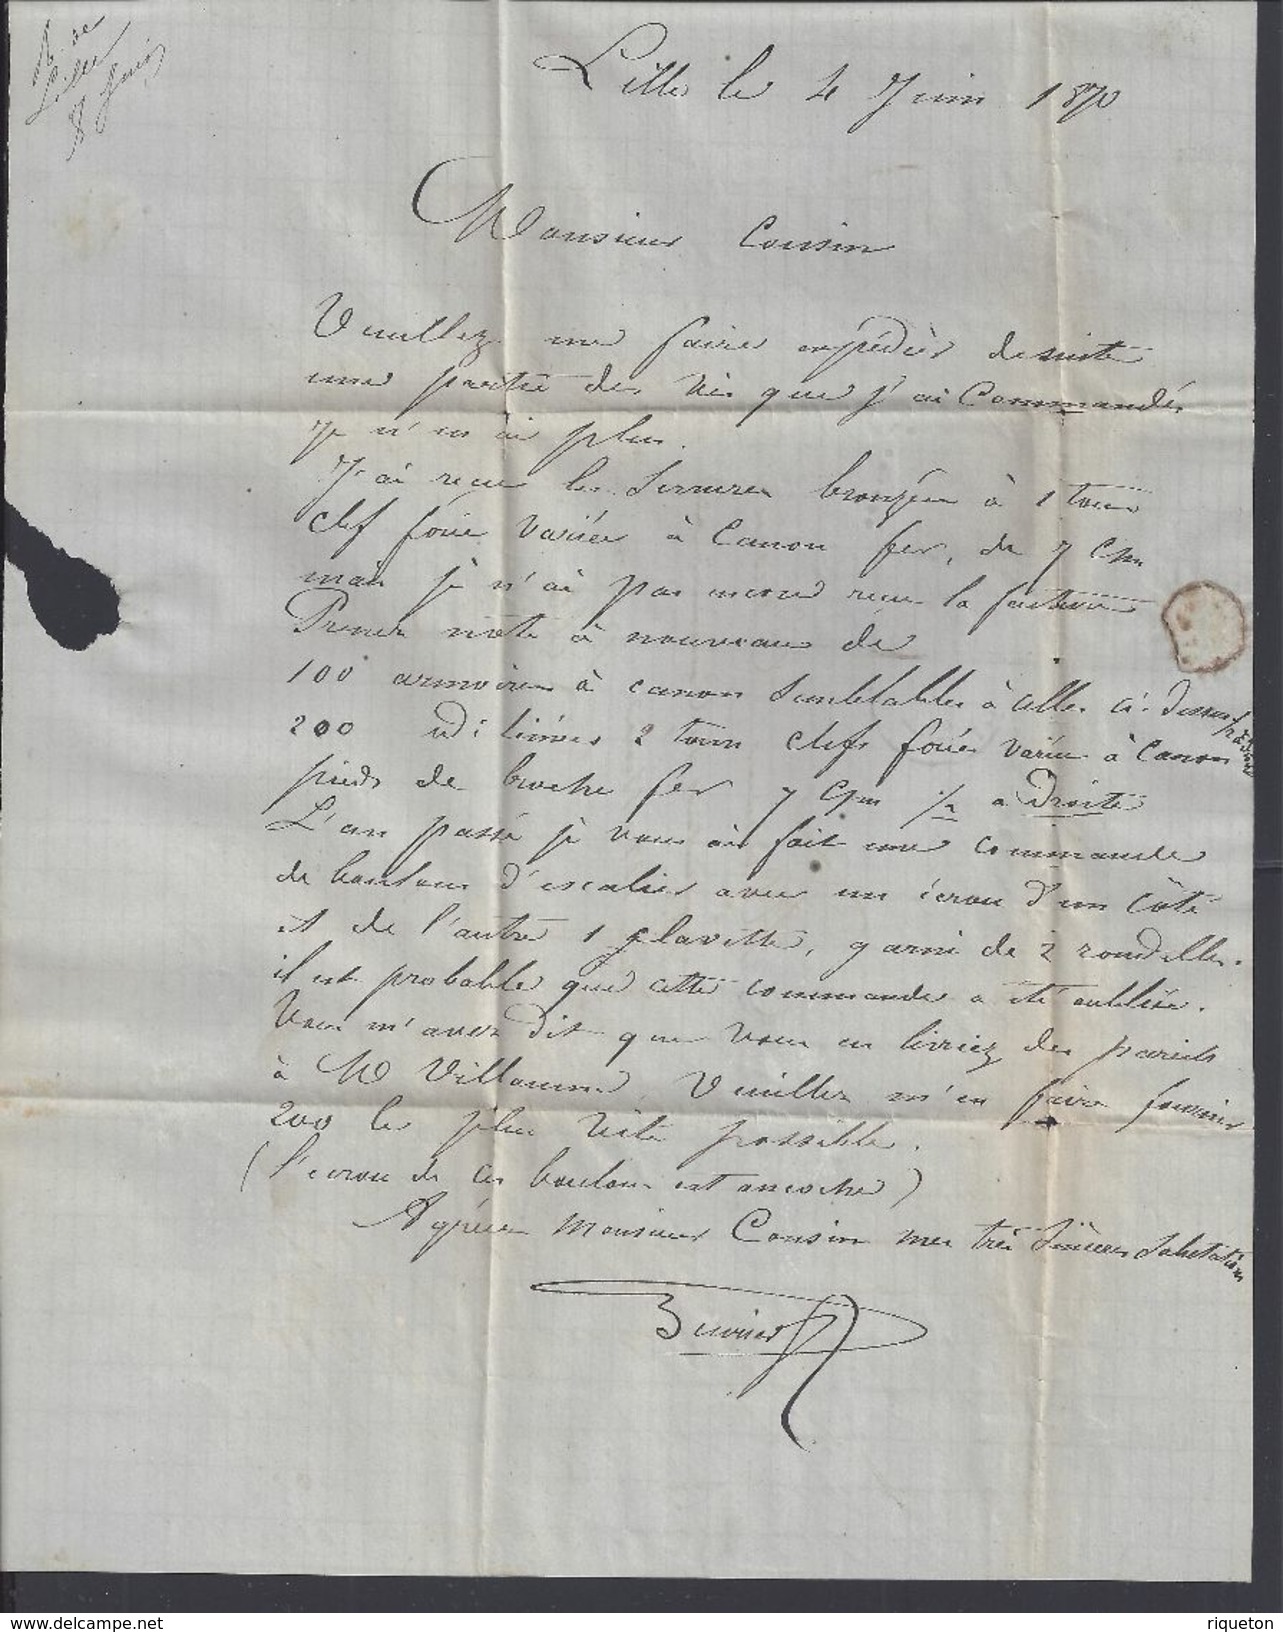 Lille le 4 Juin 1870
Monsieur Cousin
Veuillez me faire expédier de suite
une partie des vis que j'ai Commandés
Je n'en ai plus.
J'ai reçu les Serrures bronzées à 1 tour
clef forée variées à Canon fer, de 7 c/m
mais je n'ai pas encore reçu la facture
Prenez note à nouveau de
100 armoires à canon Semblables à celles ci-dessus
200 id: tiroirs 2 tours clefs forées variées à Canon
pieds de broche fer 7 c/m à Droite
L'an passé je vous ai fait une commande
de boulons d'escalier avec un écrou d'un côté
et de l'autre 1 clavette, garni de 2 rondelles.
il est probable que cette commande a été oubliée.
Vous m'avez dit que vous en livriez des pareils
à M Villaume. Veuillez m'en faire fournir
200 le plus vite possible.
(l'écrou de ces boulons est encoché)
Agréez Monsieur Cousin mes très Sincères Salutations
riqueton
www.delcampe.net